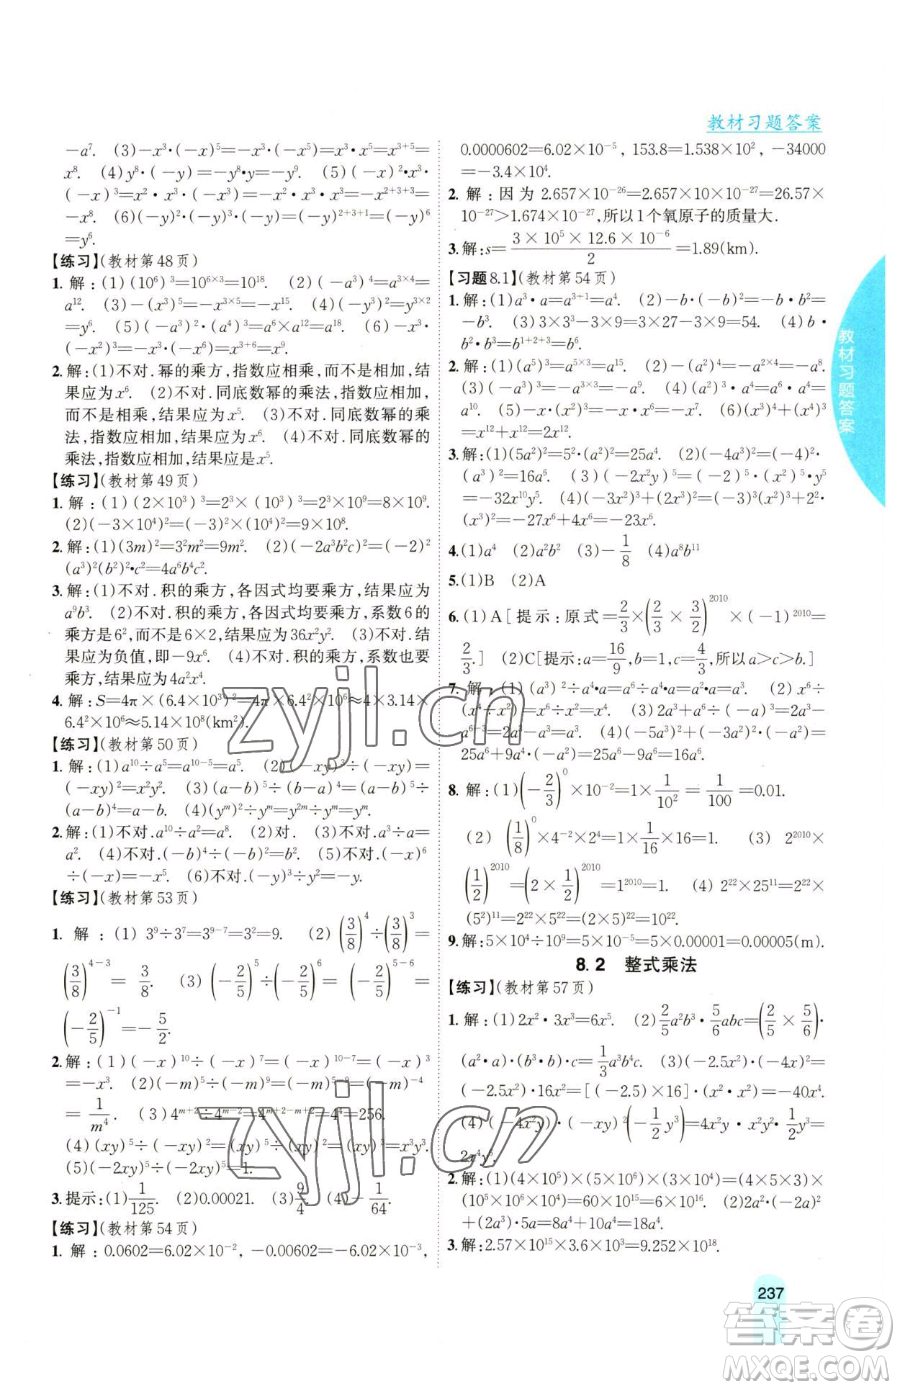 教材习题答案
－a⁷.　(3)－x³·(－x⁵)＝x³·x⁵＝x³⁺⁵＝
x⁸.　(4)y⁸·(－y)＝－y⁸·y＝－y⁹.　(5)(－x)²·
(－x)³＝－x²·x³·x³＝－x²⁺³⁺³＝
－x⁸.　(6)(－y)²·(－y)³·(－y)＝(－y)²⁺³⁺¹＝(－y)⁶
＝y⁶.
【练习】(教材第48页)
1. 解:(1)(10⁶)³＝10⁶ˣ³＝10¹⁸.　(2)(－a³)⁴＝a³ˣ⁴＝
a¹².　(3)－(x³)⁵＝－x³ˣ⁵＝－x¹⁵.　(4)(－y³)²＝y³ˣ²
＝y⁶.　(5)(－a⁶)³·(－a⁴)³＝
2. 解:(1)不对.幂的乘方,指数应相乘,而不是相加,结
果应为x⁶.　(2)不对.同底数幂的乘法,指数应相加,
而不是相乘,结果应为x⁵.　(3)不对.同底数幂的乘
法,指数应相加,结果应为x⁶.　(4)不对.同底数幂的
乘法,指数应相加,结果应为x⁵.
【练习】(教材第49页)
1. 解:(1)(2×10³)³＝2³×(10³)³＝8×10⁹.
(2)(－3×10⁴)²＝(－3)²×(10⁴)²＝9×10⁸.
2. 解:(1)(3m)²＝3²m²＝9m².　(2)(－2a³b²c)²＝(－2)²
(a³)²(b²)²·c²＝4a⁶b⁴c².
3. 解:(1)不对.积的乘方,各因式均要乘方,结果应为
a⁹b³.　(2)不对.积的乘方,各因式均要乘方,系数6的
乘方是6²,而不是6×2,结果应为36x²y².　(3)不对.结果
应为负值,即－9x⁶.　(4)不对.积的乘方,系数也要
乘方,结果应为4a²x⁴.
4. 解:S＝4π×(6.4×10³)²＝4π×6.4²×10⁶≈4×3.14×
6.4²×10⁶≈5.14×10⁸(km²).
【练习】(教材第50页)
1. 解:(1)a¹⁰÷a⁵＝a¹⁰⁻⁵＝a⁵.　(2)(－xy)³÷(－xy)＝
(－xy)²＝x²y².　(3)(a－b)⁵÷(b－a)⁴＝(a－b)⁵÷
(a－b)⁴＝a－b.　(4)(yᵐ)²÷yᵐ＝y²ᵐ÷yᵐ＝yᵐ.
2. 解:(1)不对.a¹⁰÷a²＝a⁸.　(2)不对.a³÷a＝
a².　(4)不对.(－b)⁴÷(－b)²＝b².　(5)不对.(－x)⁶
÷(－x)⁶＝1.
【练习】(教材第53页)
1. 解:(1) 3⁹÷3⁷＝3⁹⁻⁷＝3²＝9.　(2) (3/8)⁴÷(3/8)³＝
(3/8)⁴⁻³＝3/8.　(3)(－2/5)⁵÷(－2/5)⁶＝(－2/5)⁵⁻⁶＝
(－2/5)⁻¹＝－5/2.
2. 解:(1)(－x)¹⁰÷(－x)⁷＝(－x)¹⁰⁻⁷＝(－x)³
＝－x³.　(2)(－m)⁵÷(－m)⁹＝(－m)⁵⁻⁹＝(－m)⁻⁴
＝1/m⁴.　(3)4ᵐ⁺²÷4ᵐ⁻²＝4ᵐ⁺²⁻ᵐ⁺²＝4⁴＝256.
(4)(xy)⁵÷(－xy)²＝(xy)⁵÷(xy)²＝(xy)³＝x³y³.
(5)(－2)⁵÷(－2)⁵＝1.
3. 提示:(1)1/125.　(2)0.00021.　(3)9/4　(4)－1/64.
【练习】(教材第54页)
1. 解:0.0602＝6.02×10⁻², －0.00602＝－6.02×10⁻³,
0.0000602＝6.02×10⁻⁵, 153.8＝1.538×10², －34000
＝－3.4×10⁴.
2. 解:因为2.657×10⁻²⁶＝2.657×10×10⁻²⁷＝26.57×
10⁻²⁷＞1.674×10⁻²⁷,所以1个氧原子的质量大.
3. 解:s＝(3×10⁵×12.6×10⁻⁶)/2＝1.89(km).
【习题8.1】(教材第54页)
1. 解:(1)a³·a＝a³⁺¹＝a⁴.　(2)－b·(－b)²＝－b·b²＝
－b³.　(3)3³·3－3×9＝3×9＝54.　(4)b·
b²·b³＝b⁶.
2. 解:(1)(a⁵)³＝a⁵ˣ³＝a¹⁵.　(2)－(a²)⁴＝－a²ˣ⁴＝－a⁸.
(3)(－a)⁶·a⁴＝a⁶·a⁴＝
a¹⁰.　(5)－x·(x²)³·x²＝－x⁹.　(6)(x³)⁴＋(x⁴)³＝
x¹²＋x¹²＝2x¹².
3. 解:(1)(5a²)²＝5²(a²)²＝25a⁴.　(2)(－4a³)²＝(－4)²·
(a³)²＝16a⁶.　(3)(－2x²y)⁵＝(－2)⁵·(x²)⁵·y⁵
＝－32x¹⁰y⁵.　(4)(－3x²)³＋(2x³)²＝(－3)³(x²)³＋2²
(x³)²＝－27x⁶＋4x⁶＝－23x⁶.
4. (1)a⁴　(2)a²b²　(3)－1/8　(4)a⁸b¹¹
5. (1)B　(2)A
6. (1)A[提示:原式＝2/3×(2/3×3/2)²⁰¹⁰×(－1)²⁰¹⁰＝
2/3.]　(2)C[提示:a＝16/9,b＝1,c＝4/3,所以a＞c＞b.]
7. 解:(1)(a³)²÷a⁴·a＝a⁶÷a⁴·a＝a³.　(2)x⁶÷
(x⁴÷x²)＝x⁶÷x²＝x⁴.　(3)2a⁵÷(－a)³＝2a⁵÷(－a³)
＝－2a².　(4)(－5a³)²＋(－3a³)²·(－a)＝
25a⁶＋9a⁶·(－a)＝25a⁶－9a⁶＝16a⁶.
8. 解:(1)(－2/3)⁰×10⁻²＝1×1/10²＝1/100＝0.01.
(2) (1/8)⁰×4⁻²×2⁴＝1×1/16×16＝1.　(3) 2²⁰¹⁰×
(1/2)²⁰¹⁰＝(2×1/2)²⁰¹⁰＝1²⁰¹⁰＝1.　(4) 2²²×25¹¹＝2²²×
(5²)¹¹＝2²²×5²²＝(2×5)²²＝10²².
9. 解:5×10⁴÷10⁹＝5×10⁻⁵＝5×0.00001＝0.00005(m).
8.2　整式乘法
【练习】(教材第57页)
1. 解:(1)2x²·3x³＝6x⁵.　(2)2/5a²b³·5/6abc＝(2/5×5/6)·
(a²·a)·(b³·b)·c＝1/3a³b⁴c.　(3)(－2.5x²)·(－4x)²＝
(－2.5x²)·16x²＝[(－2.5)×16](x²·x²)＝－40x⁴.
(4)(－4x²y)·(－xy)²·(－1/2y³)＝4x²y·x²y²·1/2y³＝
2x⁴y⁶.
2. 解:(1)(4×10⁵)×(5×10⁴)×(3×10⁴)＝(4×5×3)×
(10⁵×10⁴)＝60×10¹³＝6×10¹⁴.　(2)(－2a)³·
(2a³)＋8a⁴＝
3. 解:2.57×10¹⁵×3.6×10³＝9.252×10¹⁸.
教材习题答案
237
zyjl.cn
zyjl.cn
答案圈
MXQE.COM